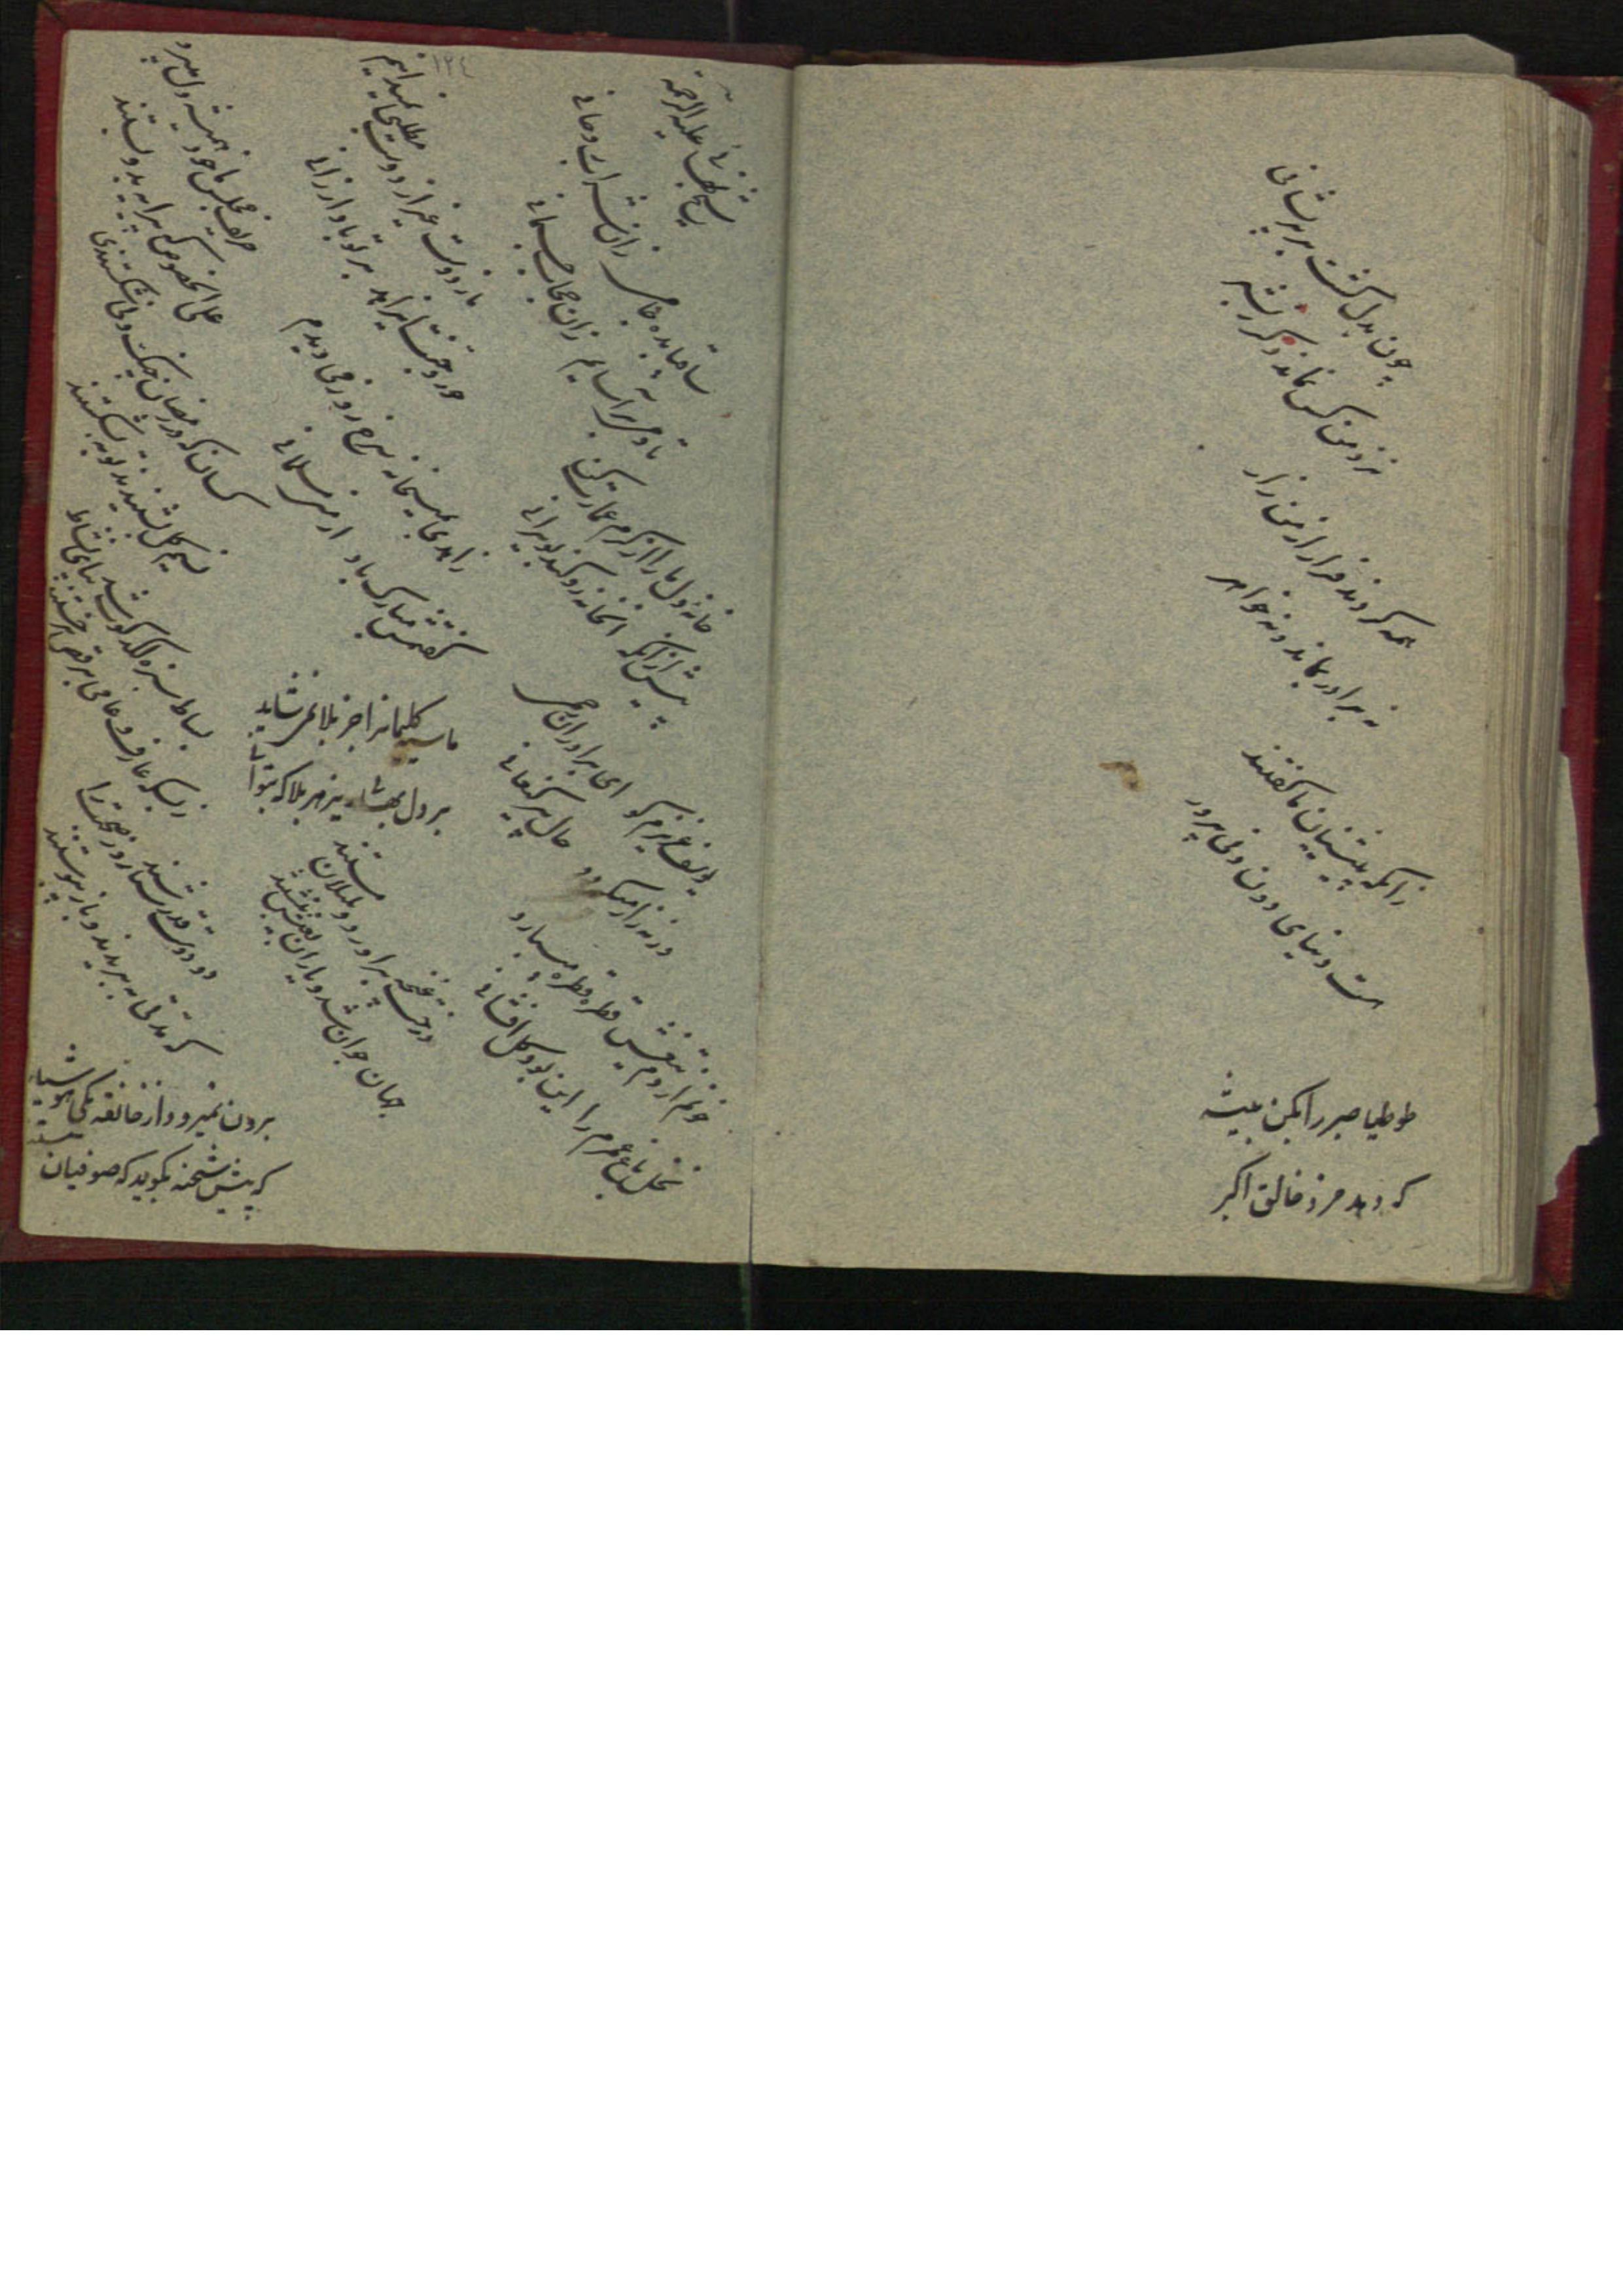 چون بدل گشت بر پریشانی
نزد من کس نماند دگر ز بشر
همه کردند فرار از من زار
نه برادر بماند و نه خواهر
زانکه پیشینیان ما گفتند
هست دنیای دون دنی پرور
طوطیا صبر را بکن پیشه
که دهد مزد خالق اکبر
١٢٤
شیخ بهائی علیه الرحمه
ساقیا بده جامی زان شراب روحانی
تا دمی بیاسایم زان حجاب جسمانی
خانه دل ما را از کرم عمارت کن
پیش از آنکه اینخانه رو کند بویرانی
یوسف عزیزم کو ای برادران رحمی
حال پیر کنعانی
خونم از دم تیغش قطره قطره میبارد
نخل باغ عمرم را این بود گل افشانی
ما ز دوست غیر از دوست مطلبی نمیدانیم
حور و جنت ای زاهد بر تو باد ارزانی
زاهدی بمیخانه سرخ رو ز می دیدم
گفتمش مبارک باد ارمنی مسلمانی
ما سیه گلیمانرا جز بلا نمیشاید
بر دل بهائی نه هر بلا که بتوانی
درخت غنچه برآورد و بلبلان مستند
جهان جوان شد و یاران بعیش بنشستند
حریف مجلس ما خود همیشه دل میبرد
علی الخصوص که پیرایه بدو بستند
کسان که در رمضان چنگ و نی شکستندی
نسیم گل بشنیدند و توبه بشکستند
بساط سبزه لگدکوب شد بپای نشاط
ز بسکه عارف و عامی برقص برجستند
دو دوست قدر شناسند روز صحبت را
که مدتی ببریدند و باز پیوستند
برون نمیرود از خانقه یکی هوشیار
که پیش شحنه بگوید که صوفیان مستند